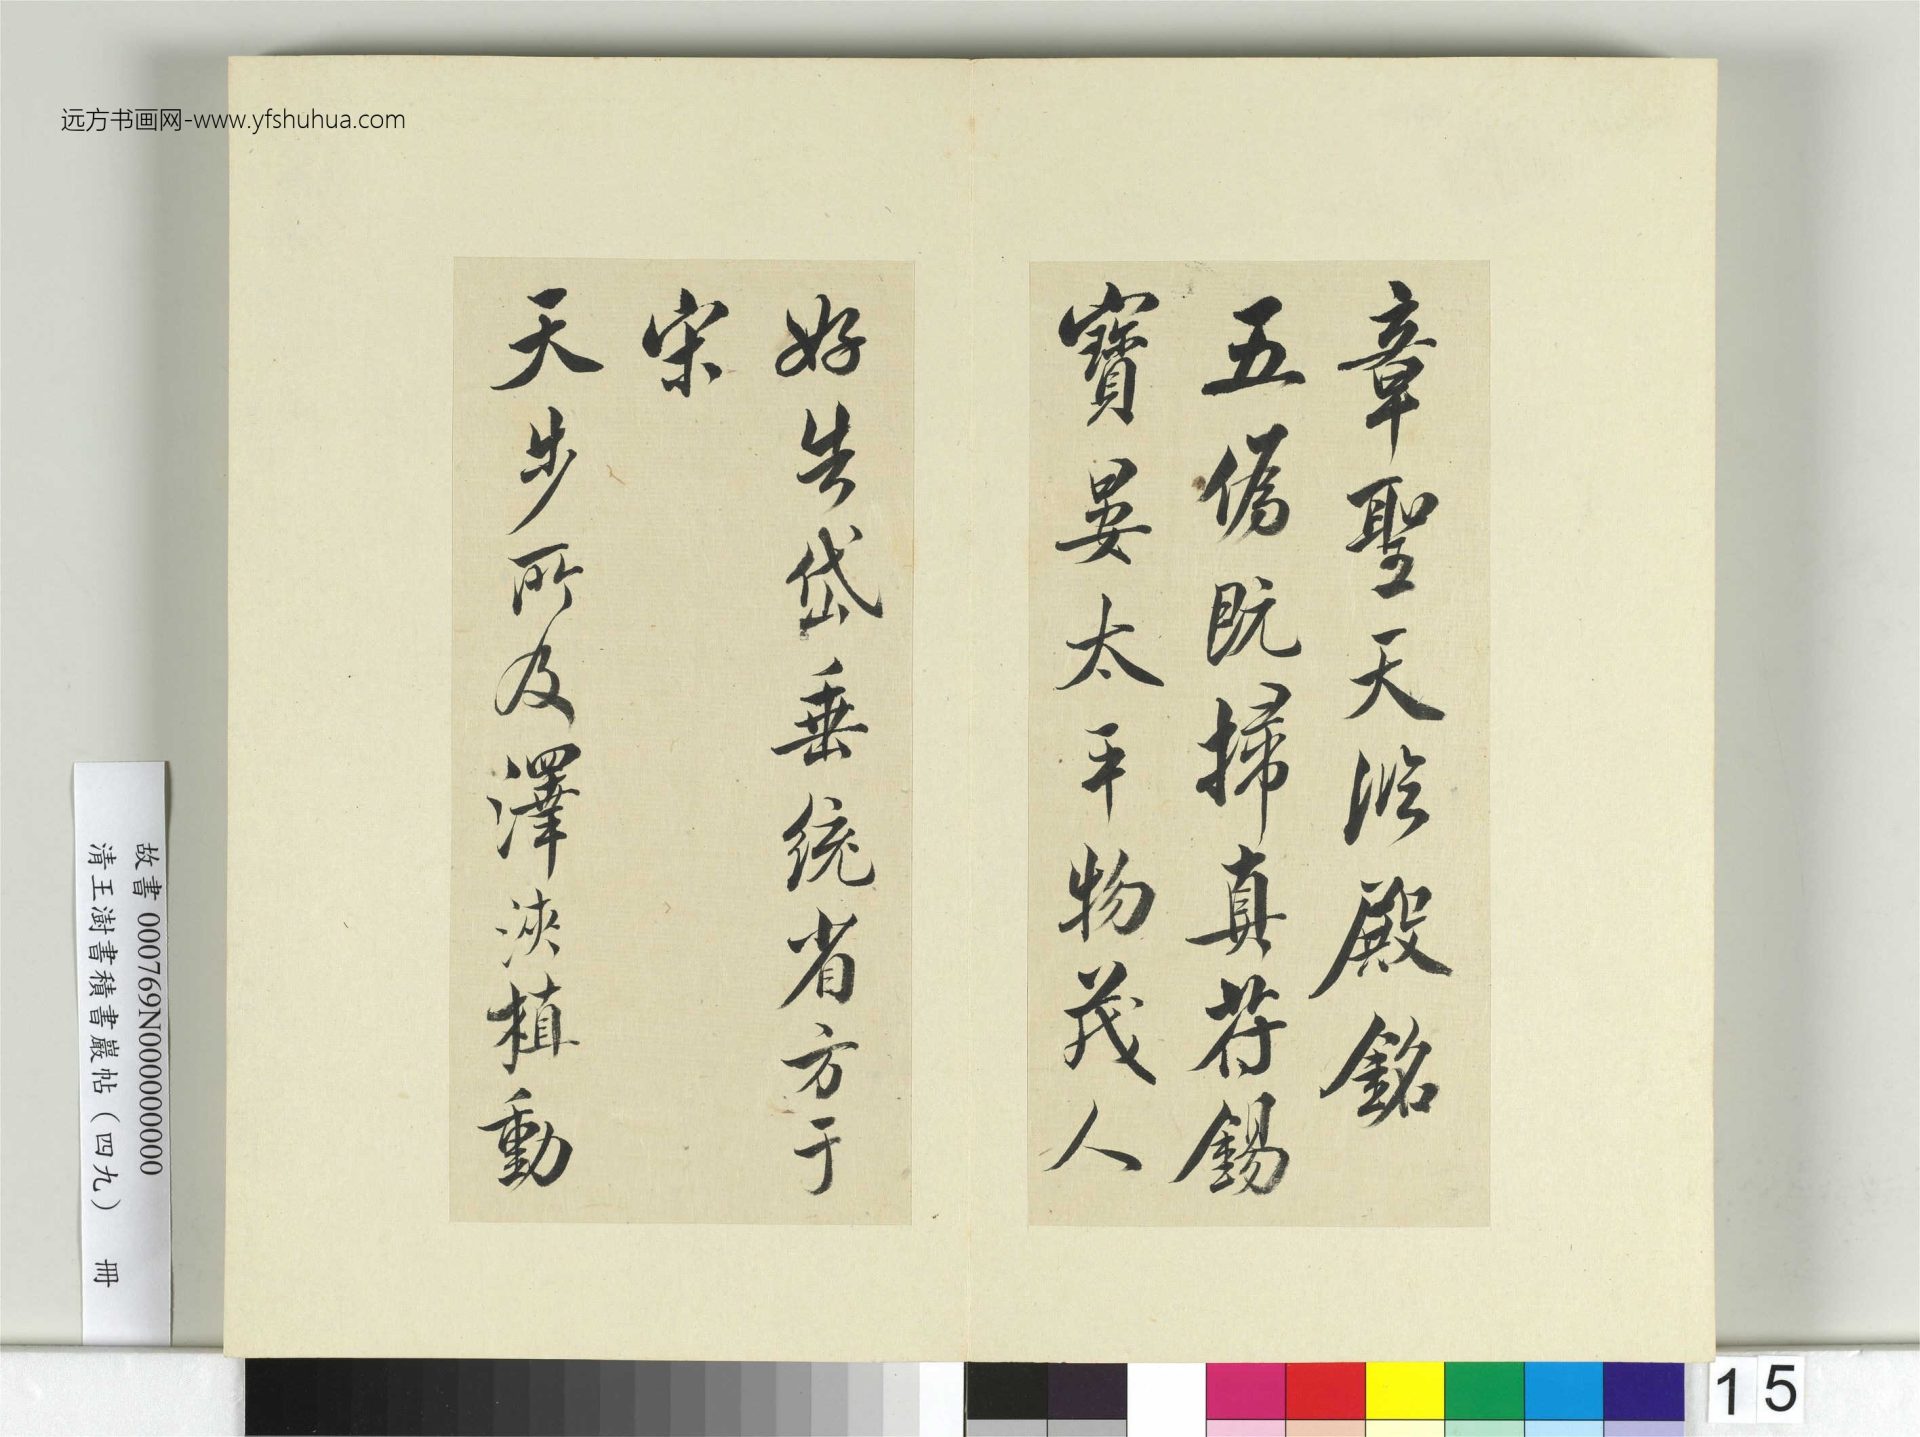 远方书画网-www.yfshuhua.com
章聖天臨殿銘
五偽既掃真符錫
寶晏太平物茂人
好告岱垂統省方于
宋
天步所及澤浹植動
故書 000769N000000000
清王澍書積書巖帖（四九） 冊
15